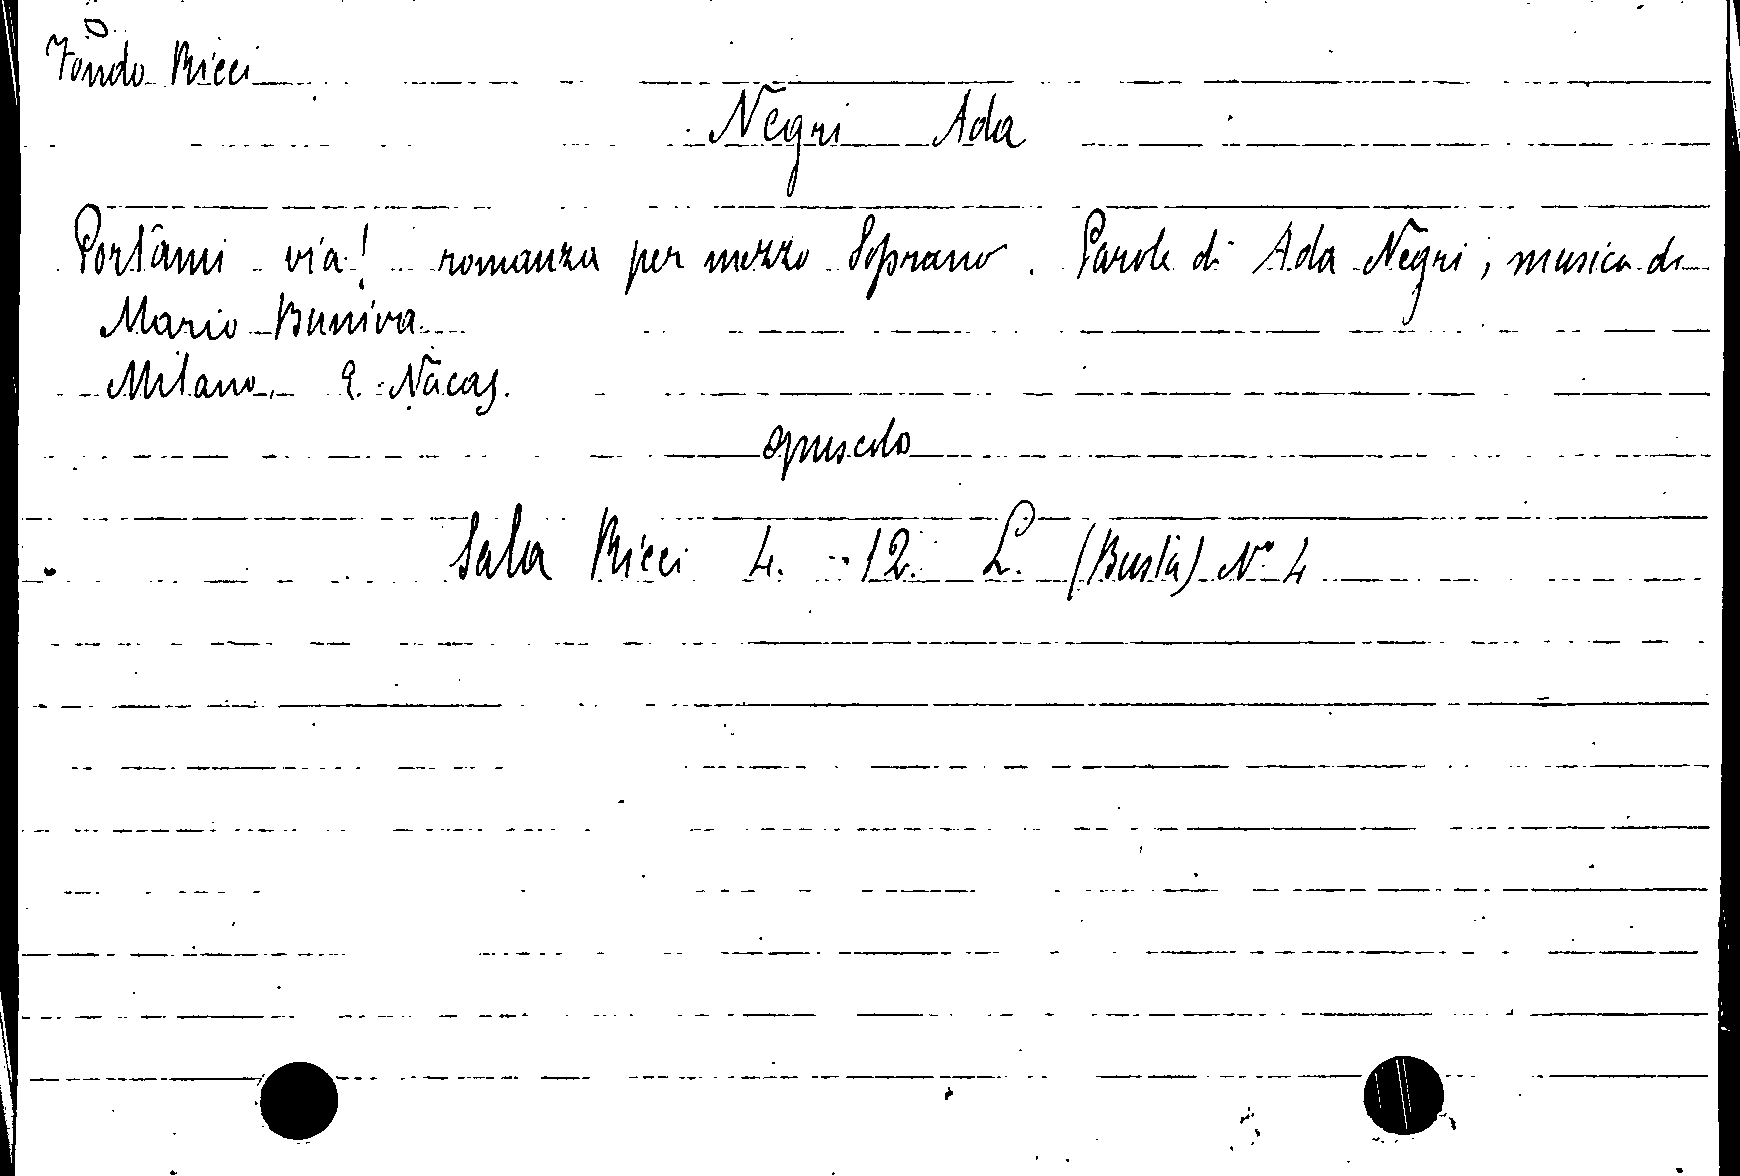 Fondo Ricci
Negri Ada
Portami via! romanza per mezzo Soprano. Parole di Ada Negri, musica di
Mario Buniva
Milano, E. Nacas.
opuscolo
Sala Ricci 4. - 12. L. (Busta) N° 4